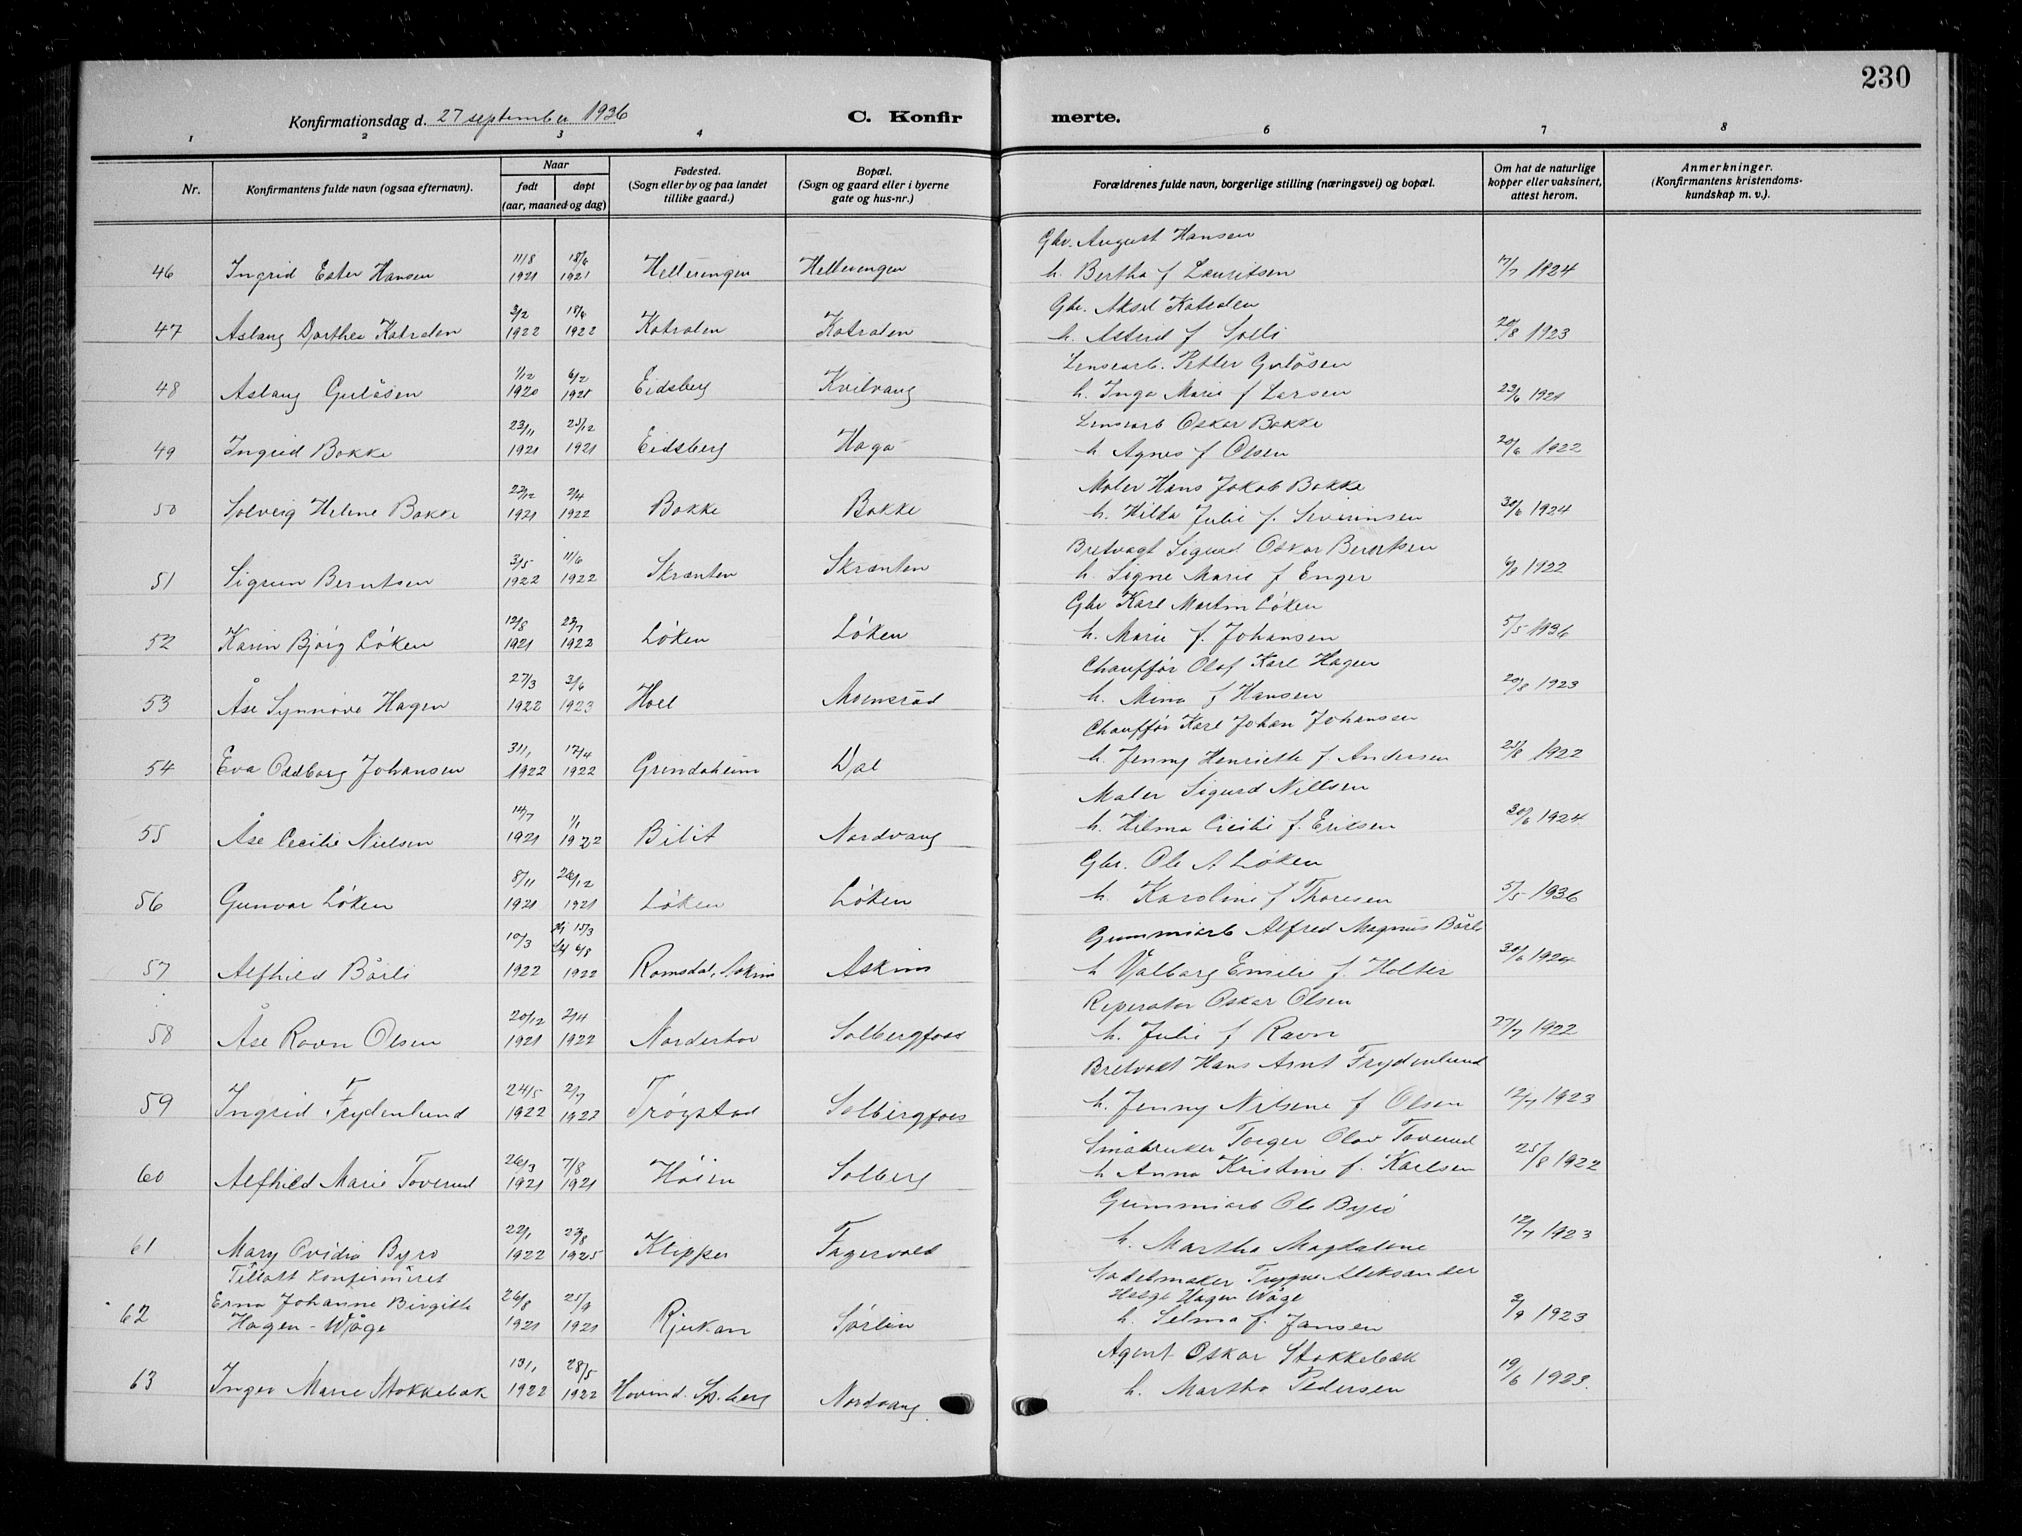 230
Konfirmationsdag d. 27 september 1936
C. Konfirmerte.
1 2 3 4 6 7 8
Nr.
Konfirmantens fulde navn (ogsaa efternavn).
Naar
født døpt
(aar, maaned og dag)
Fødested.
(Sogn eller by og paa landet
tillike gaard.)
Bopæl.
(Sogn og gaard eller i byerne
gate og hus-nr.)
Forældrenes fulde navn, borgerlige stilling (næringsvei) og bopæl.
Om hat de naturlige
kopper eller vaksinert,
attest herom.
Anmerkninger.
(Konfirmantens kristendoms-
kundskap m. v.).
Gbr. August Hansen
46 Ingrid Ester Hansen 11/8 1921 18/6 1921 Hellerengen Hellerengen h. Bertha f Lauritsen 1924
Gbr. Aksel Katralen
47 Aslaug Dorthea Katralen 3/2 1922 18/6 1922 Katralen Katralen h. Astrid f Solli 20/8 1923
Lensearb. Petter Guslåsen
48 Aslaug Guslåsen 1/12 1920 6/2 1921 Eidsberg Kvilvang h. Inga Marie f Larsen 23/6 1921
Lensearb Oskar Bakke
49 Ingrid Bakke 23/11 1921 25/12 1921 Eidsberg Haga h Agnes f Olsen 20/6 1922
Maler Hans Jakob Bakke
50 Solveig Helene Bakke 22/12 1921 2/4 1922 Bakke Bakke h. Hilda Julie f. Severinsen 30/6 1924
Bretvagt Sigurd Oskar Berntsen
51 Sigrun Berntsen 3/5 1922 11/6 1922 Skrænten Skrænten h. Signe Marie f Enger 1922
Gbr Karl Martin Løken
52 Karin Bjørg Løken 12/8 1921 23/7 1922 Løken Løken h. Marie f. Johansen 5/5 1936
Chauffør Olaf Karl Hagen
53 Åse Synnøve Hagen 27/3 1922 3/6 1923 Hoel Moensrød h. Mina f Hansen 20/8 1923
Chauffør Karl Johan Johansen
54 Eva Oddborg Johansen 31/1 1922 17/4 1922 Grindaheim Dal h. Jenny Henriette f Andersen 25/8 1922
Maler Sigurd Nillsen
55 Åse Cecilie Nielsen 14/7 1921 1/1 1922 Bilit Nordvang h. Hilma Cicilie f. Eriksen 30/6 1924
Gbr. Ole A Løken
56 Gunvor Løken 8/11 1921 26/12 1921 Løken Løken h. Karoline f Thoresen 5/5 1936
Gummiarb Alfred Magnus Bårli
57 Alfhild Bårli 10/3 1922 15/3 6/8 1922 Romsdal, Askim Askim h Valborg Emilie f. Holter 30/6 1924
Reperatør Oskar Olsen
58 Åse Ravn Olsen 20/12 1921 2/4 1922 Norderhov Solbergfoss h. Julie f Ravn 27/7 1922
Bretvakt Hans Arnt Frydenlund
59 Ingrid Frydenlund 24/5 1922 2/7 1922 Trøgstad Solbergfoss h. Jenny Nilsine f Olsen 12/7 1923
Småbruker Torger Olav Toverud
60 Alfhild Marie Toverud 26/3 1921 7/8 1921 Høien Solberg h Anna Kristine f. Karlsen 25/8 1922
Gummiarb Ole Byrø
61 Mary Ovidia Byrø 22/1 1922 23/8 1925 Klipper Fagervold h. Martha Magdalene 12/7 1923
Tillatt konfirmeret
Sadelmaker Trygve Aleksander
Helge Hagen Wåge
62 Erna Johanne Birgitte
Hagen-Wåge 26/8 1921 25/9 1921 Rjukan Sørlin h. Selma f. Jansen 3/9 1923
Agent Oskar Stokkebæk
63 Inger Marie Stokkebæk 13/1 1922 28/5 1922 Hovind. Sp. berg Nordvang. h. Martha Pedersen 19/6 1923.